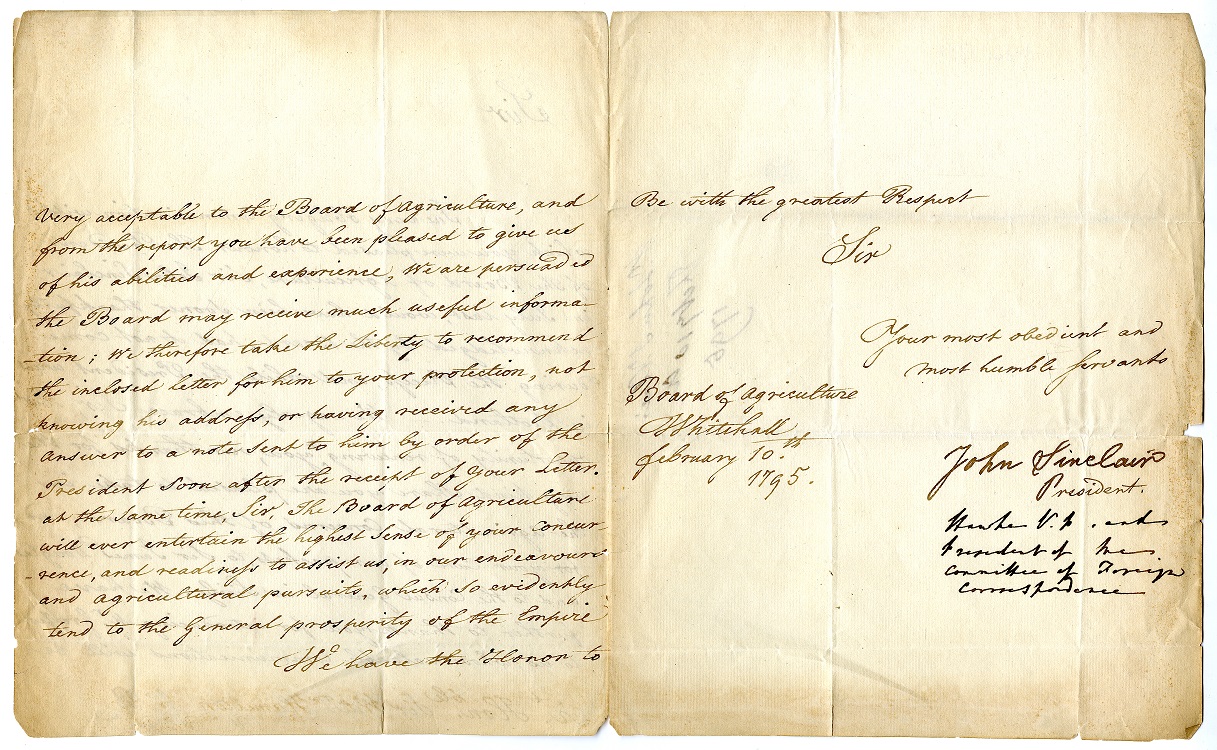 Very acceptable to the Board of Agriculture, and
from the report you have been pleased to give us
of his abilities and experience, We are persuaded
the Board may receive much useful informa-
-tion; We therefore take the Liberty to recommend
the inclosed letter for him to your protection, not
knowing his address, or having received any
Answer to a note sent to him by order of the
President soon after the receipt of your Letter.
at the Same time, Sir, The Board of Agriculture
will ever entertain the highest Sense of your Concur-
-rence, and readiness to assist us, in our endeavours
and agricultural pursuits, which so evidently
tend to the General prosperity of the Empire
We have the Honor to
Be with the greatest Respect
Sir
Your most obedient and
most humble servants
Board of Agriculture
Whitehall
february 10.th
1795.
John Sinclair
President.
Hawke V.P. and
President of the
Committee of Foreign
Correspondence